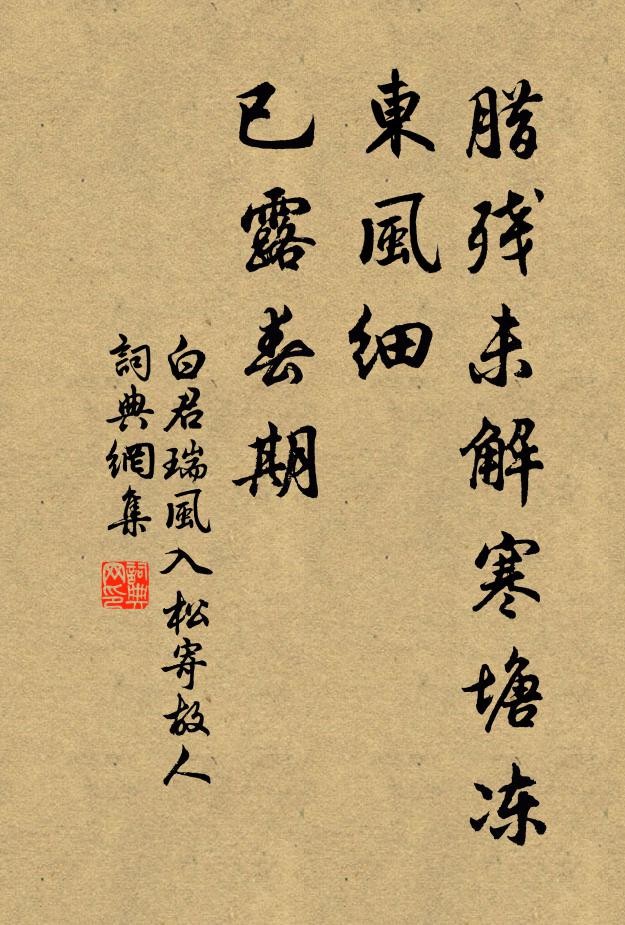 腊残未解寒塘冻
東風细
已露春期
白君瑞風入松寄故人
詞典網集
詞典网印